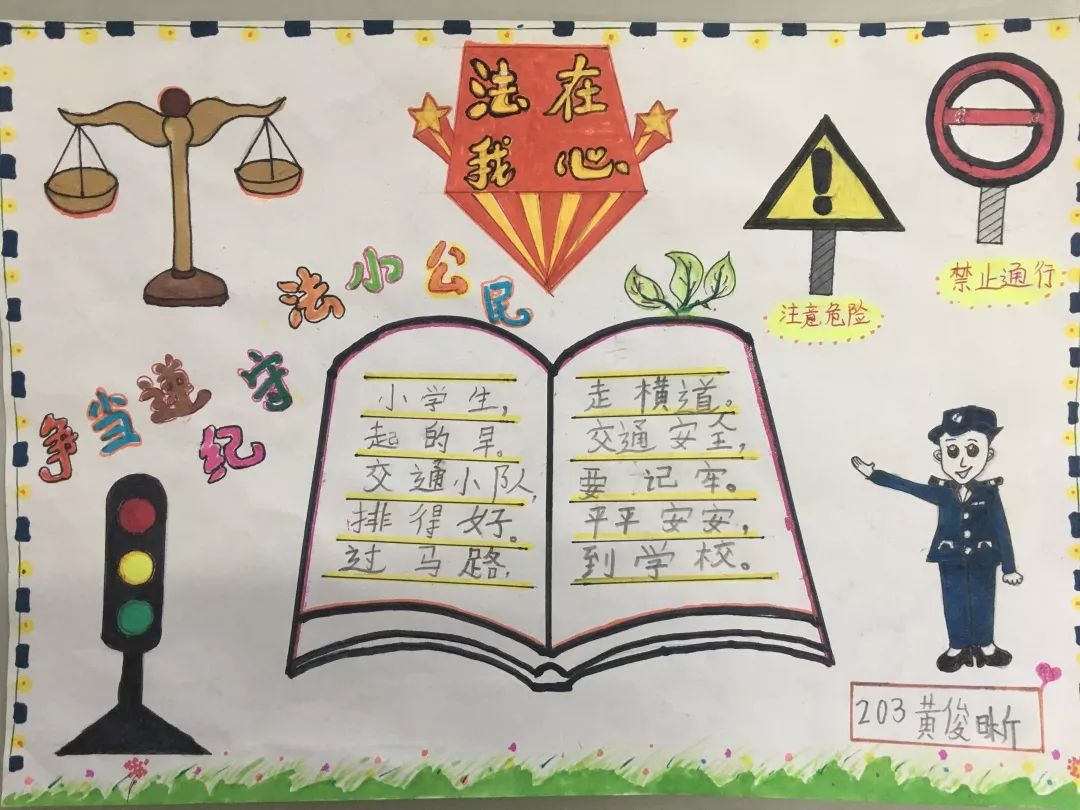 法在
我心
争当遵纪守法小公民
注意危险
禁止通行
小学生,
起的早。
交通小队,
排得好。
过马路,
走横道。
交通安全,
要记牢。
平平安安,
到学校。
203 黄俊昕